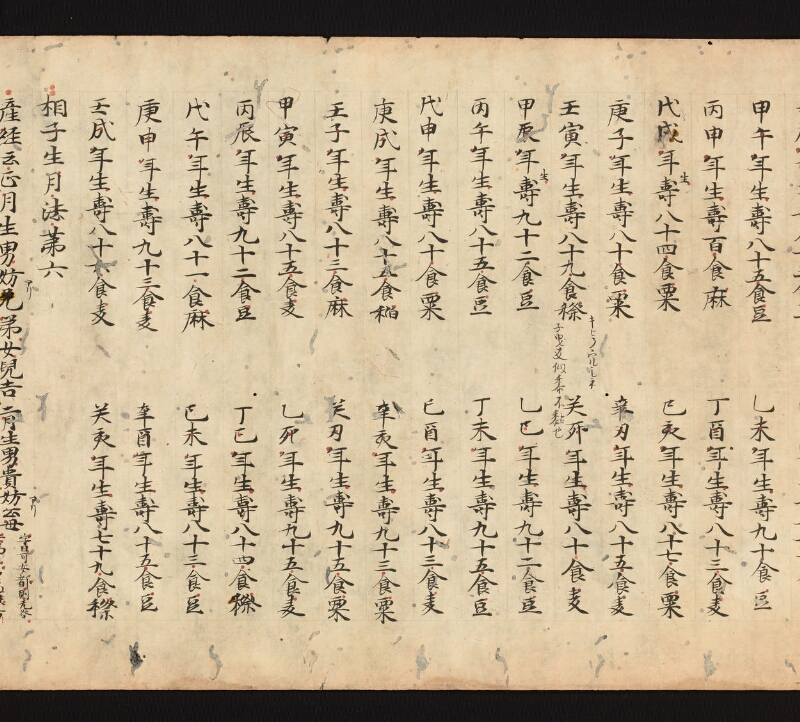 甲午年生壽八十五食豆 乙未年生壽九十食豆
丙申年生壽百食麻 丁酉年生壽八十三食麦
戊戌年生壽八十四食粟 己亥年生壽八十七食粟
庚子年生壽八十食粟 辛丑年生壽八十五食麦
壬寅年生壽八十九食穄 癸卯年生壽八十食麦
甲辰年生壽九十二食豆 乙巳年生壽九十二食豆
丙午年生壽八十五食豆 丁未年生壽九十五食豆
戊申年生壽八十食粟 己酉年生壽八十三食麦
庚戌年生壽八十五食稻 辛亥年生壽九十三食粟
壬子年生壽八十三食麻 癸丑年生壽九十五食粟
甲寅年生壽八十五食麦 乙卯年生壽九十五食麦
丙辰年生壽九十二食豆 丁巳年生壽八十四食穄
戊午年生壽八十一食麻 己未年生壽八十三食豆
庚申年生壽九十三食麦 辛酉年生壽八十五食豆
壬戌年生壽八十食麦 癸亥年生壽七十九食穄
相子生月法第六
產経云正月生男妨兄弟女兒吉二月生男貴妨父母